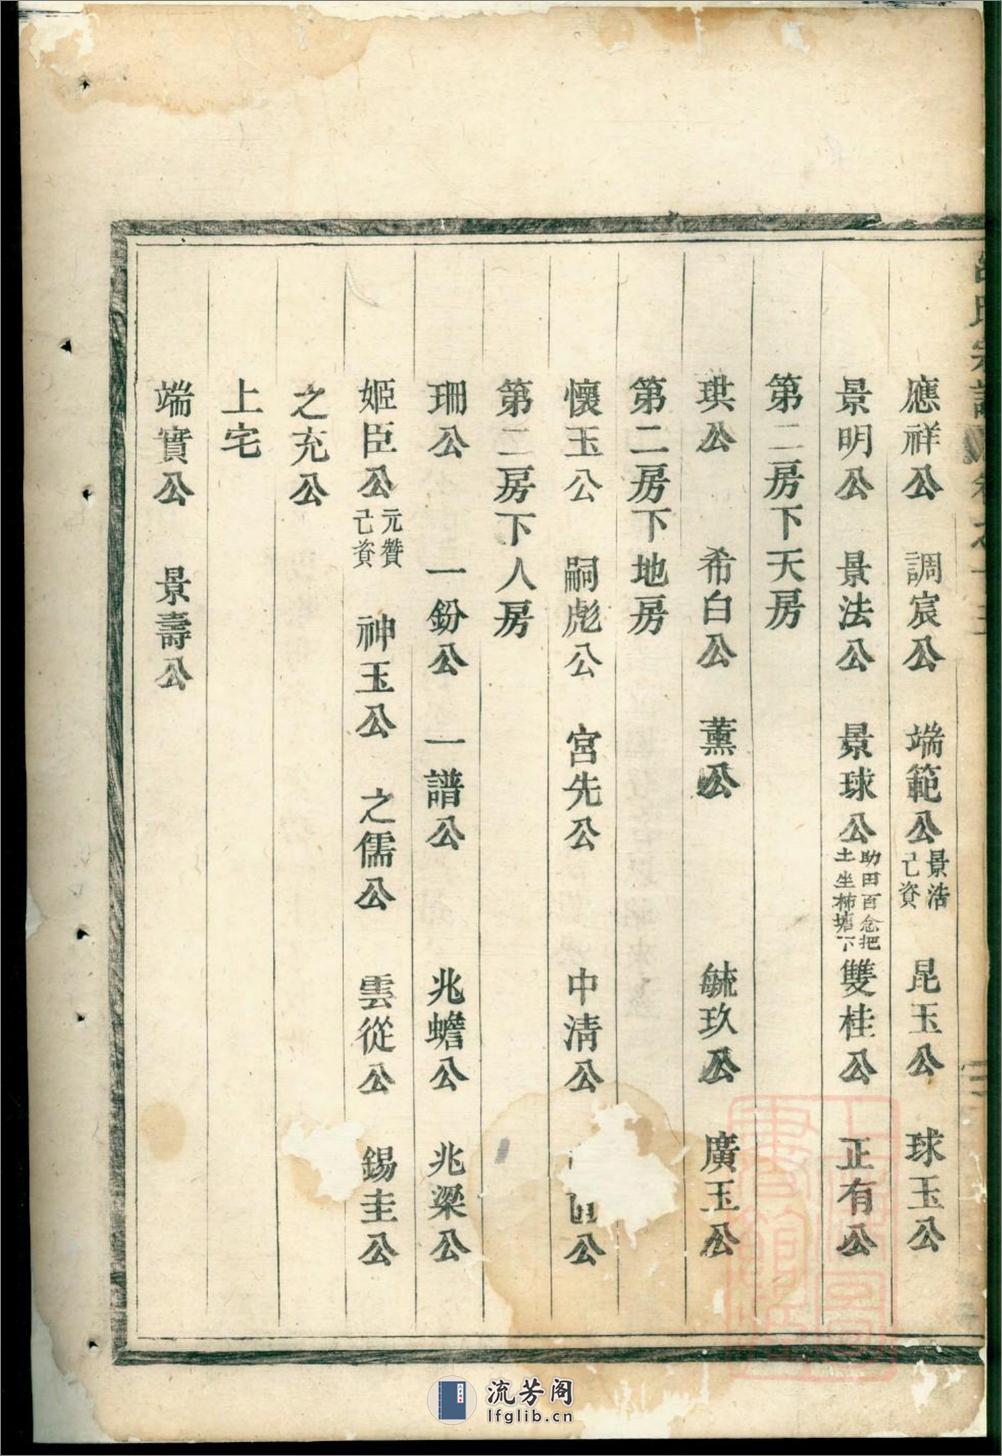 氏宗譜 卷之十三
應祥公 調宸公 端範公 景浩己資 昆玉公 球玉公
景明公 景法公 景球公 助田百念把土坐柿塘下 雙桂公 正有公
第二房下天房
珙公 希白公 薰公 毓玖公 廣玉公
第二房下地房
懷玉公 嗣彪公 宮先公 中清公 公
第二房下人房
珊公 一鈖公 一譜公 兆蟾公 兆梁公
姬臣公 元贊己資 神玉公 之儒公 雲從公 錫圭公
之充公
上宅
端實公 景壽公
流芳阁
lfglib.cn